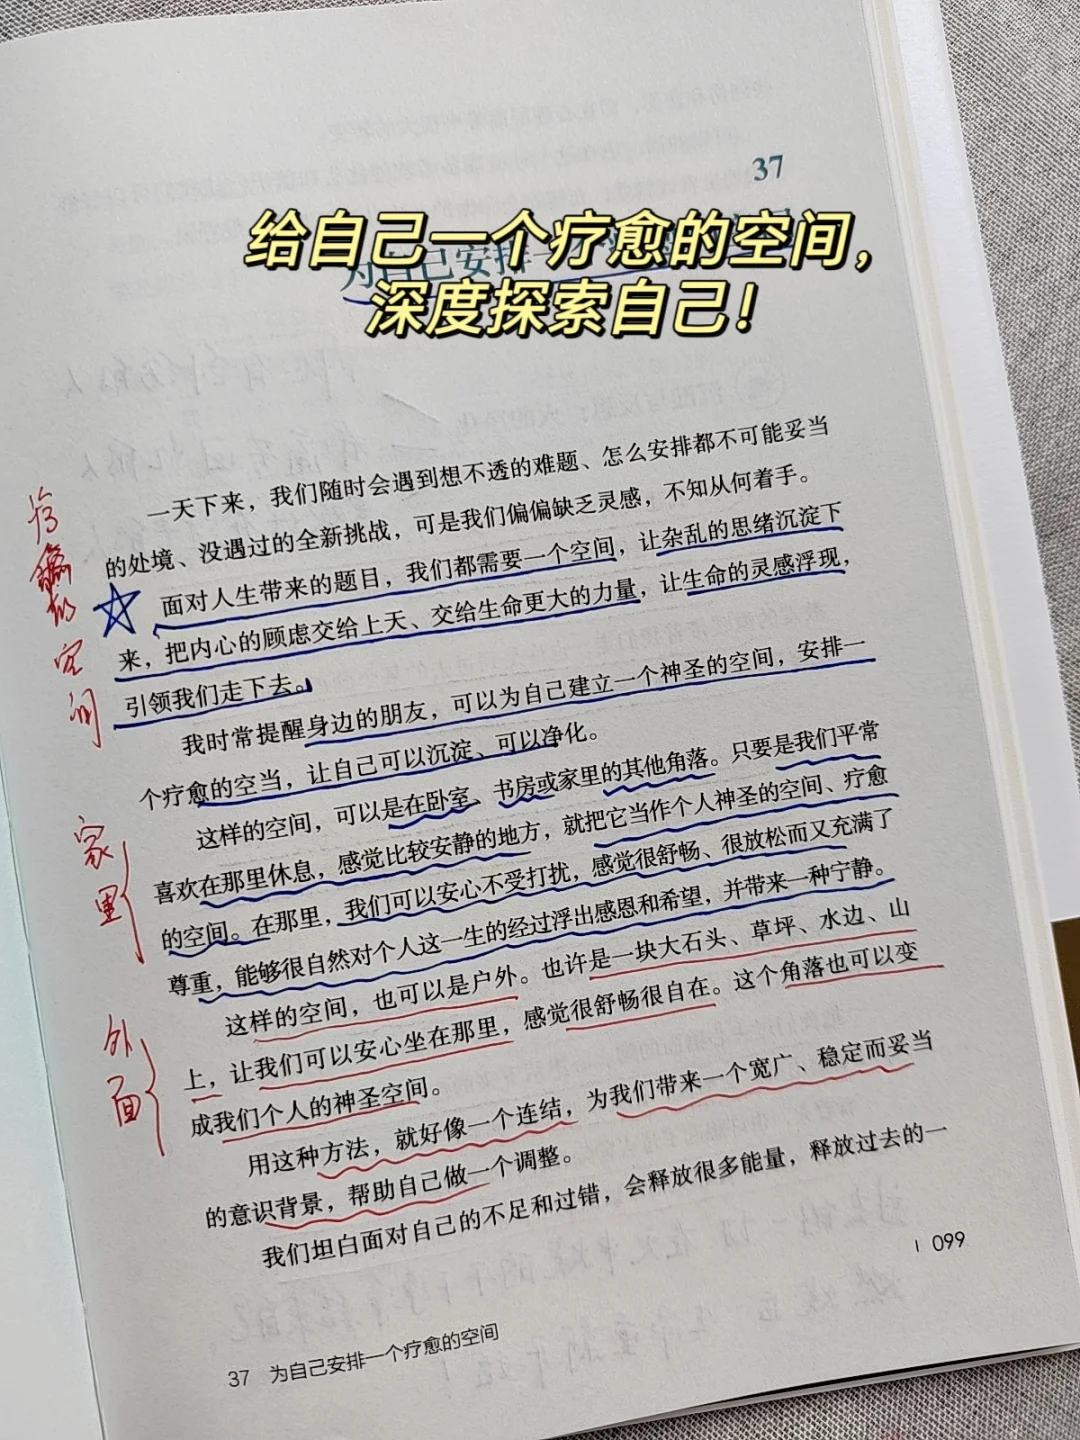 37
给自己一个疗愈的空间，
深度探索自己！
一天下来，我们随时会遇到想不透的难题、怎么安排都不可能妥当
的处境、没遇过的全新挑战，可是我们偏偏缺乏灵感，不知从何着手。
面对人生带来的题目，我们都需要一个空间，让杂乱的思绪沉淀下
来，把内心的顾虑交给上天、交给生命更大的力量，让生命的灵感浮现，
引领我们走下去。
我时常提醒身边的朋友，可以为自己建立一个神圣的空间，安排一
个疗愈的空当，让自己可以沉淀、可以净化。
这样的空间，可以是在卧室、书房或家里的其他角落。只要是我们平常
喜欢在那里休息，感觉比较安静的地方，就把它当作个人神圣的空间、疗愈
的空间。在那里，我们可以安心不受打扰，感觉很舒畅、很放松而又充满了
尊重，能够很自然对个人这一生的经过浮出感恩和希望，并带来一种宁静。
这样的空间，也可以是户外。也许是一块大石头、草坪、水边、山
上，让我们可以安心坐在那里，感觉很舒畅很自在。这个角落也可以变
成我们个人的神圣空间。
用这种方法，就好像一个连结，为我们带来一个宽广、稳定而妥当
的意识背景，帮助自己做一个调整。
我们坦白面对自己的不足和过错，会释放很多能量，释放过去的一
099
37 为自己安排一个疗愈的空间
空间
家里
外面